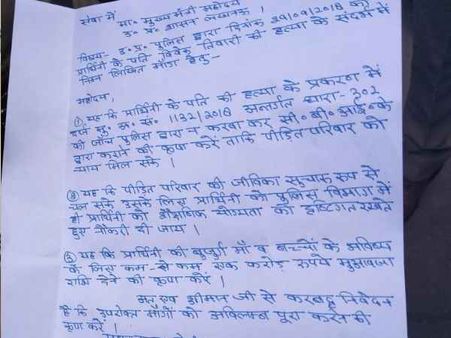 सेवा में
मा० मुख्यमंत्री महोदय
उ० प्र० शासन लखनऊ ।
विषय- उ० प्र० पुलिस द्वारा दिनांक 29/09/2018 को
प्रार्थिनी के पति विवेक तिवारी की हत्या के संदर्भ में
निम्न लिखित मांग हेतु-
महोदय,
① यह कि प्रार्थिनी के पति की हत्या के प्रकरण में
दर्ज मु० अ० सं० 1132/2018 अन्तर्गत धारा-302
की जाँच पुलिस द्वारा न करवा कर सी० बी० आई० के
द्वारा कराने की कृपा करें ताकि पीड़ित परिवार को
न्याय मिल सके ।
② यह कि पीड़ित परिवार की जीविका सुचारू रूप से
चल सके उसके लिए प्रार्थिनी को पुलिस विभाग में
ही प्रार्थिनी की शैक्षणिक योग्यता को दृष्टिगत रखते
हुए नौकरी दी जाय ।
③ यह कि प्रार्थिनी की बुजुर्ग माँ व बच्चों के भविष्य
के लिए कम-से-कम एक करोड़ रुपये मुआवजा
राशि देने की कृपा करें ।
अतः श्रीमान जी से करबद्ध निवेदन
है कि उपरोक्त मांगों को अविलम्ब पूरा करने की
कृपा करें ।